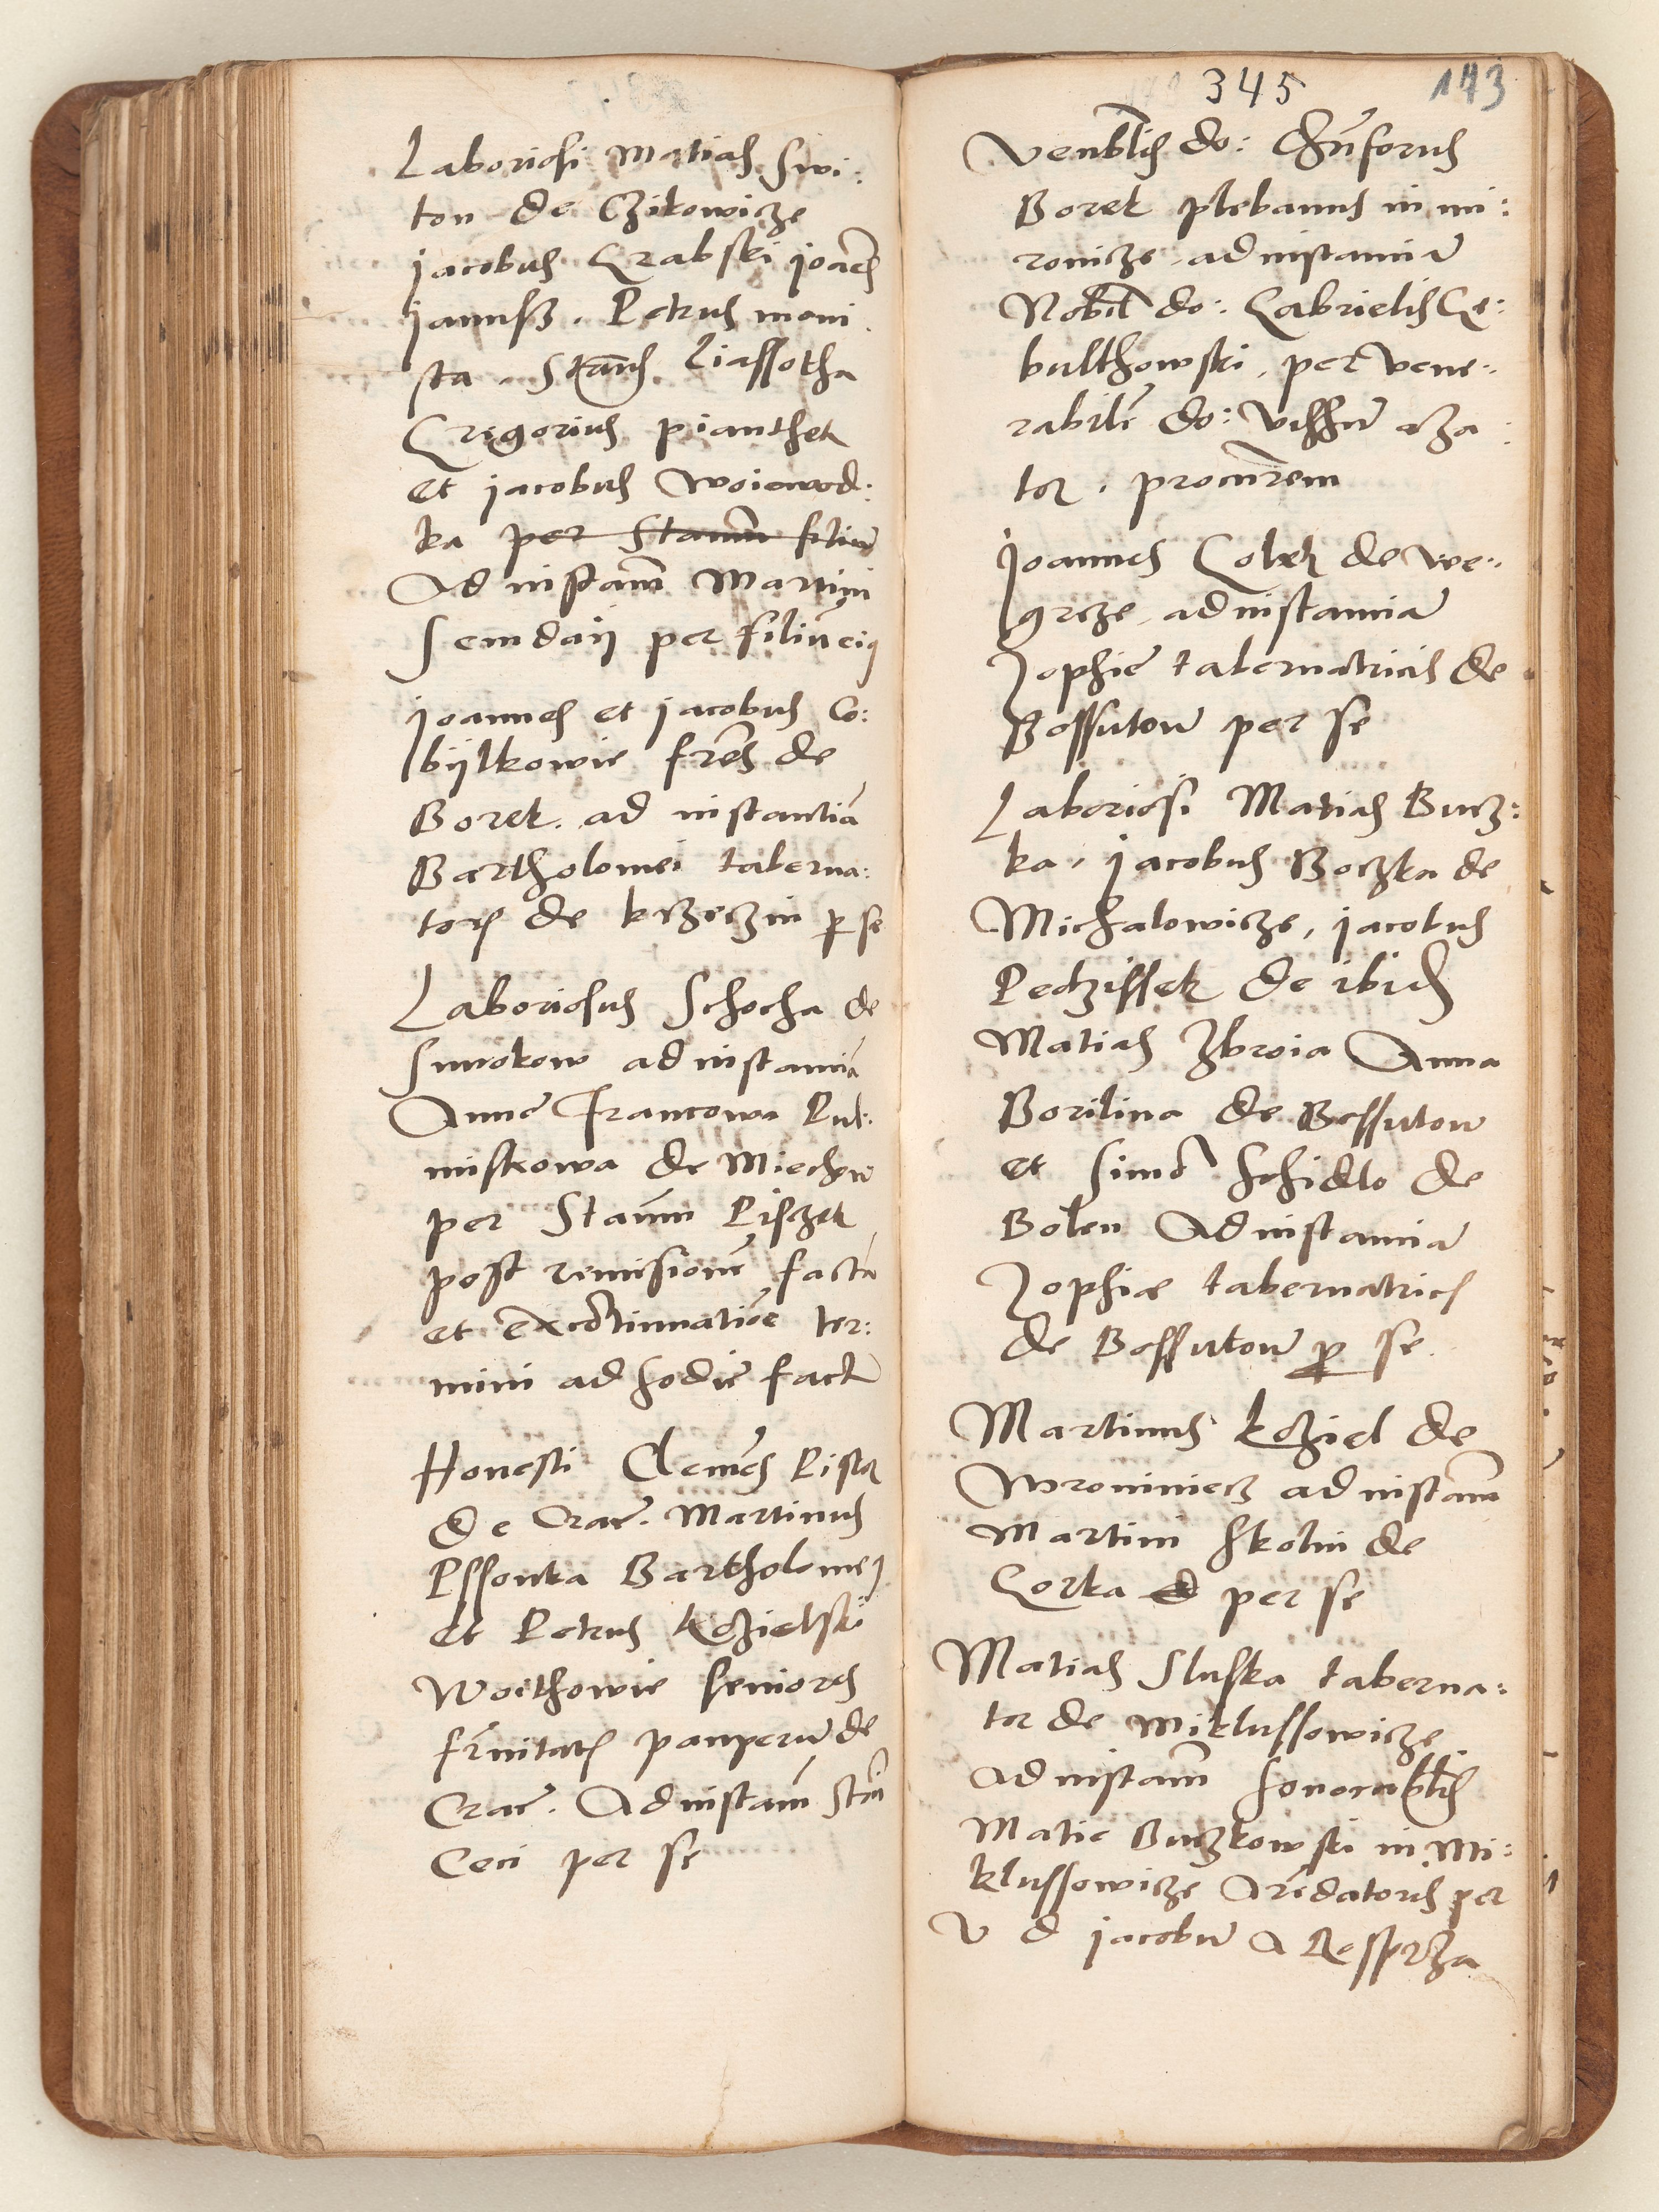 Laboriosi Matias Swi:
ton de Czikowicze
Jacobus Grabski Joanes
Janussz. Petrus moni
sta. Stans. Liassotha
Gregorius pianthek
et Jacobus Woiewod:
ka per Stanm filiu
Ad instam Martini
Sendaij per filiu eius
Joannes et Jacobus Co:
bijlkowie fres de
Borek. ad instantia
Bartholomei taberna:
toris de krzeczin p se
Laboriosus Schocha de
Smrokow ad instantia
Anne Francowa Pul:
mistrowa de Miechow
per Stanm Pisczek
post remisione facta
et ex continuatioe ter:
mini ad hodie facta
Honesti Clemes Pistor
de Crac. Martinus
Pssonka Bartholomej
et Petrus kozielski
Woithowie seniores
frnitatis pauperu de
Crac. Ad instam Stni
Ceci per se
345 173
Venblis do: Chrnforus
Borek plebanus in mi:
ronicze ad instantia
Nobil do: Gabrielis Ce:
bulthowski, per vene:
rabile do: cza
tor. procurem
Joannes Golek de we:
grcze ad instantia
Zophie tabernatricis de
Bossutow per se
Laboriosi Matias Bucz:
ka, Jacobus Boczka de
Michalowicze, Jacobus
Pedzissek de ibid
Matias Zbroia Anna
Borilina de Bossutow
et Simo Schidlo de
Bolen Ad instantia
Zophie tabernatricis
de Bossutow p se.
Martinus koziel de
Wroniniecz ad instam
Martini Skolin de
Gorka per se
Matias Sluska taberna:
tor de Miklussowicze
ad instam honorablis
Matie Buczkowski in Mi:
klussowicze Aredatoris per
V d Jacobu a